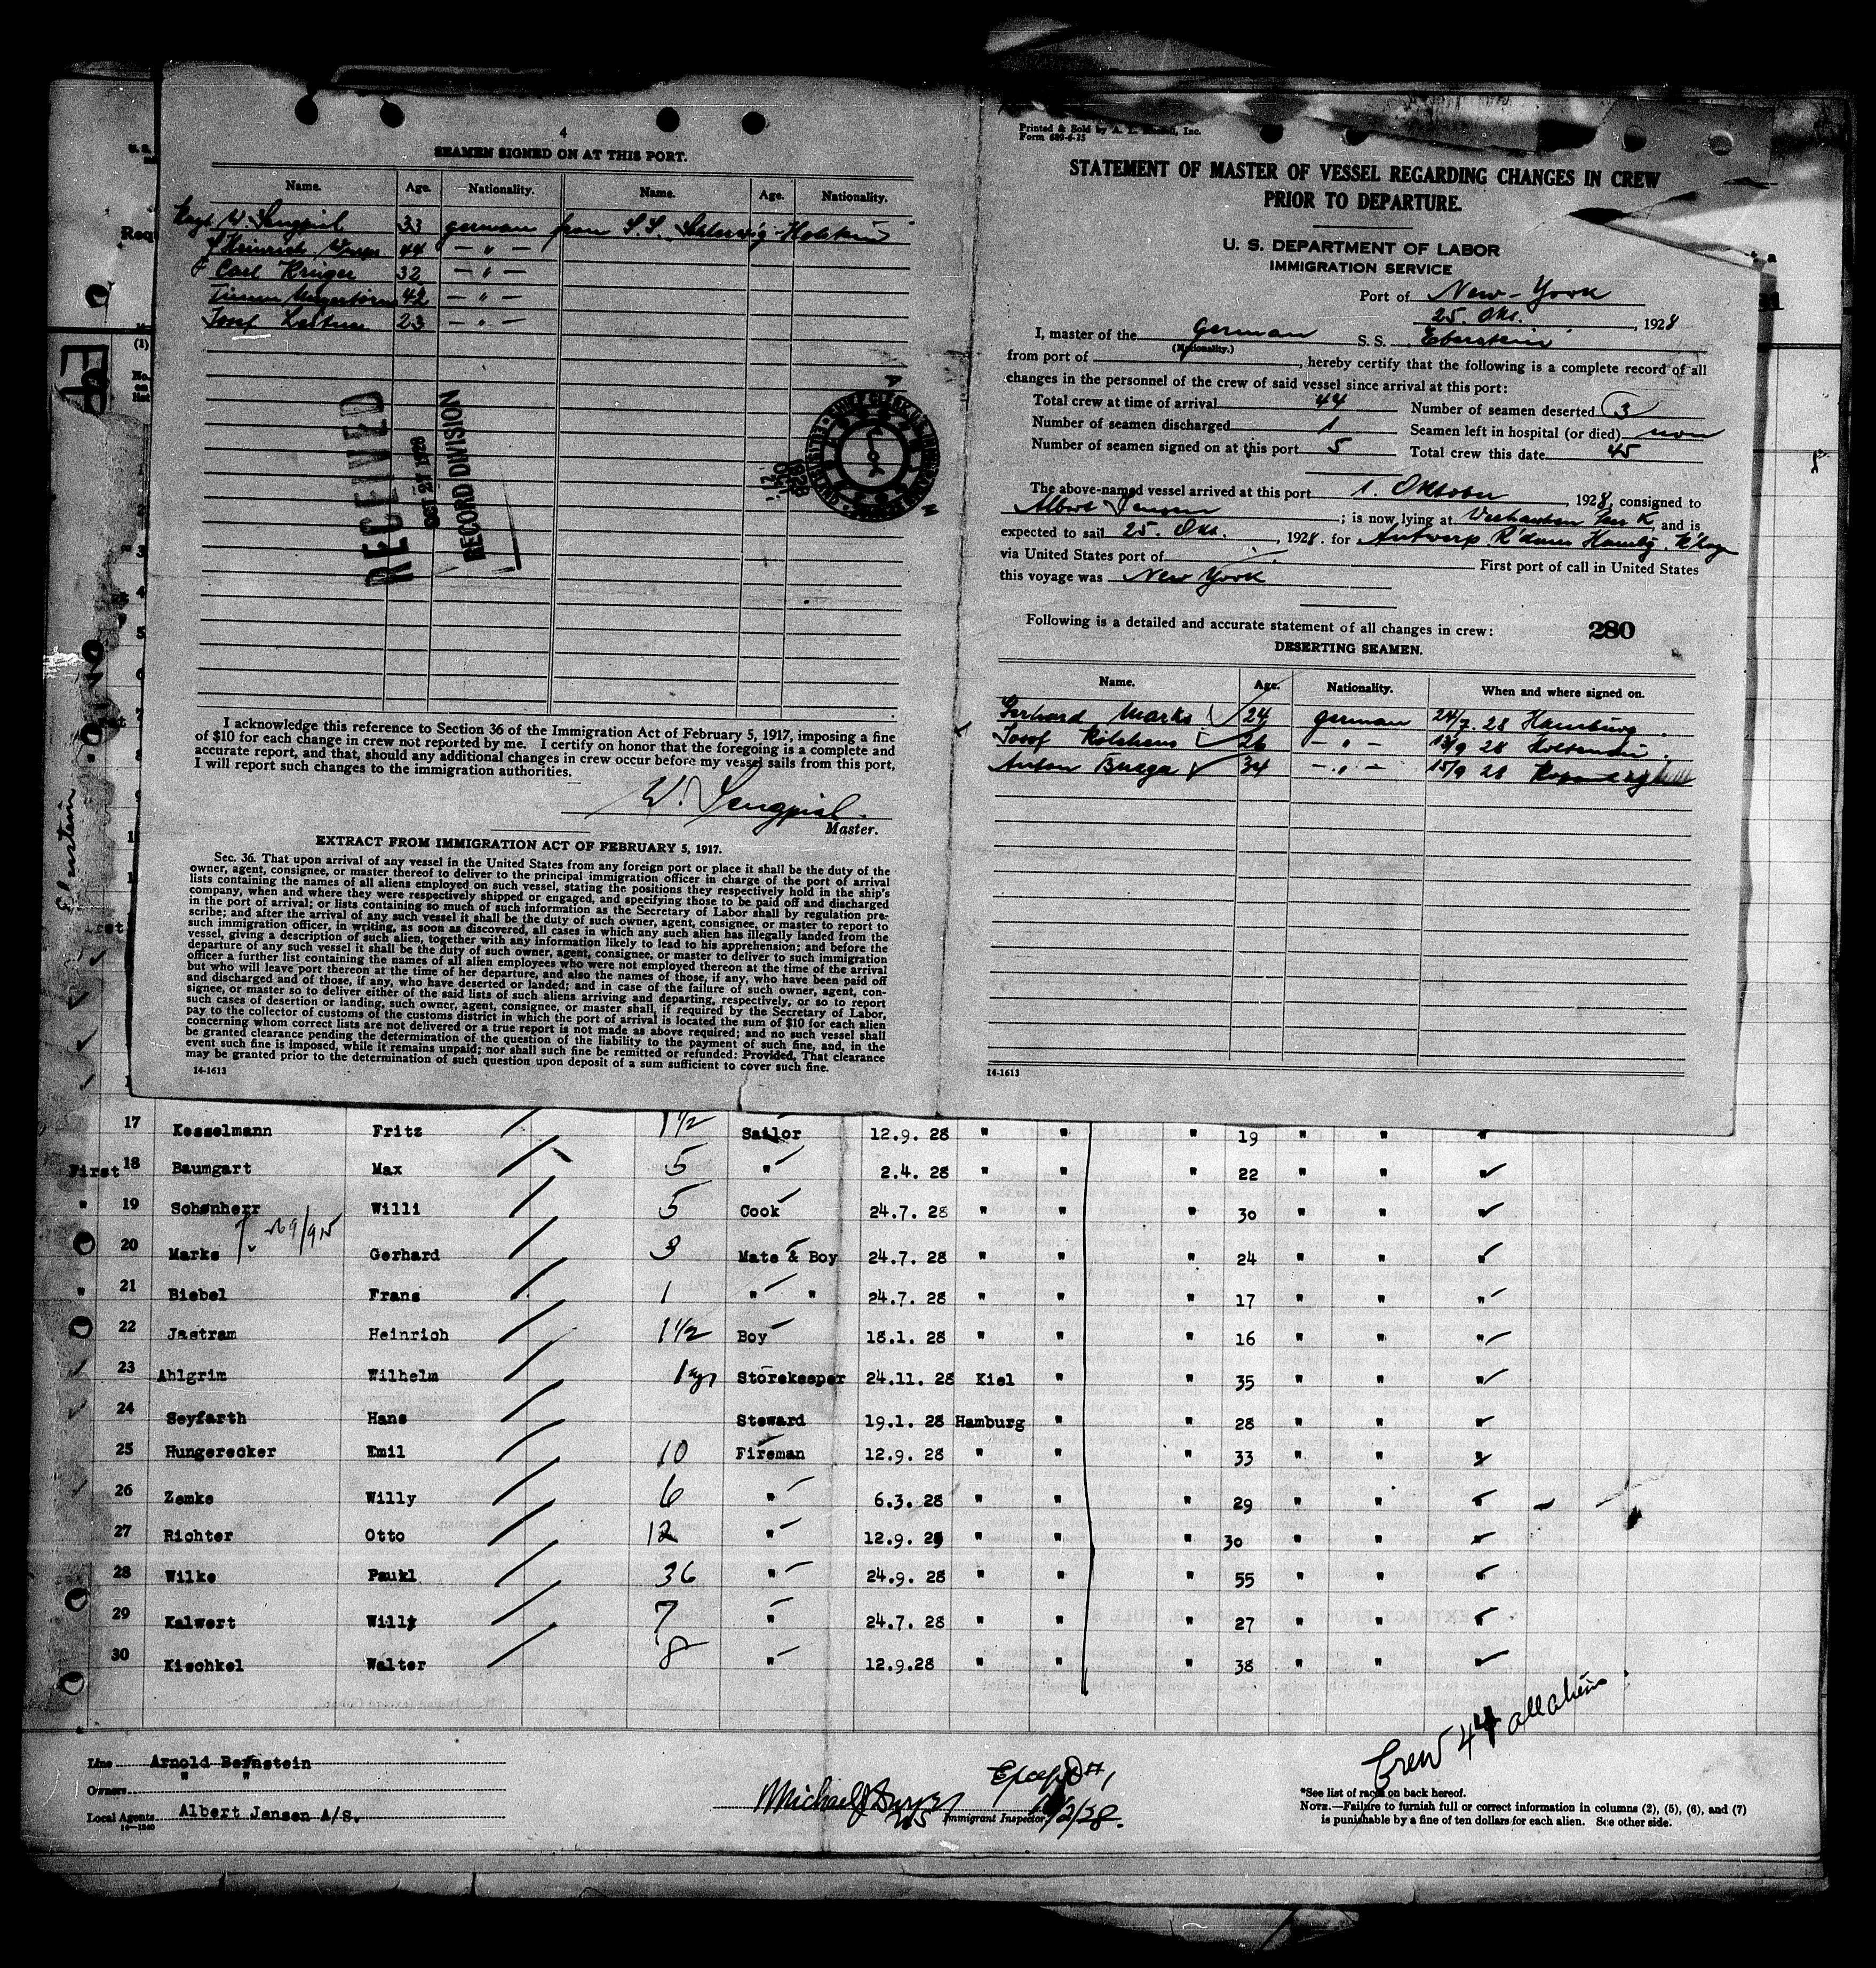 4
SEAMEN SIGNED ON AT THIS PORT.
Name. Age. Nationality. Name. Age. Nationality.
W. Sengpiel 33 german from S.S. Schleswig-Holstein
Heinrich 44 — " —
Carl Krüger 32 — " —
42 — " —
Josef 23 — " —
RECEIVED
OCT 27 1928
RECORD DIVISION
I acknowledge this reference to Section 36 of the Immigration Act of February 5, 1917, imposing a fine
of $10 for each change in crew not reported by me. I certify on honor that the foregoing is a complete and
accurate report, and that, should any additional changes in crew occur before my vessel sails from this port,
I will report such changes to the immigration authorities.
W. Sengpiel.
Master.
EXTRACT FROM IMMIGRATION ACT OF FEBRUARY 5, 1917.
Sec. 36. That upon arrival of any vessel in the United States from any foreign port or place it shall be the duty of the
owner, agent, consignee, or master thereof to deliver to the principal immigration officer in charge of the port of arrival
lists containing the names of all aliens employed on such vessel, stating the positions they respectively hold in the ship's
company, when and where they were respectively shipped or engaged, and specifying those to be paid off and discharged
in the port of arrival; or lists containing so much of such information as the Secretary of Labor shall by regulation pre-
scribe; and after the arrival of any such vessel it shall be the duty of such owner, agent, consignee, or master to report to
such immigration officer, in writing, as soon as discovered, all cases in which any such alien has illegally landed from the
vessel, giving a description of such alien, together with any information likely to lead to his apprehension; and before the
departure of any such vessel it shall be the duty of such owner, agent, consignee, or master to deliver to such immigration
officer a further list containing the names of all alien employees who were not employed thereon at the time of the arrival
but who will leave port thereon at the time of her departure, and also the names of those, if any, who have been paid off
and discharged and of those, if any, who have deserted or landed; and in case of the failure of such owner, agent, con-
signee, or master so to deliver either of the said lists of such aliens arriving and departing, respectively, or so to report
such cases of desertion or landing, such owner, agent, consignee, or master shall, if required by the Secretary of Labor,
pay to the collector of customs of the customs district in which the port of arrival is located the sum of $10 for each alien
concerning whom correct lists are not delivered or a true report is not made as above required; and no such vessel shall
be granted clearance pending the determination of the question of the liability to the payment of such fine, and, in the
event such fine is imposed, while it remains unpaid; nor shall such fine be remitted or refunded: Provided, That clearance
may be granted prior to the determination of such question upon deposit of a sum sufficient to cover such fine.
14-1613
Printed & Sold by A. Inc.
Form 689-6-25
STATEMENT OF MASTER OF VESSEL REGARDING CHANGES IN CREW
PRIOR TO DEPARTURE.
U. S. DEPARTMENT OF LABOR
IMMIGRATION SERVICE
Port of New-York
25. Okt., 1928
I, master of the german S. S. Eberstein
(Nationality.)
from port of , hereby certify that the following is a complete record of all
changes in the personnel of the crew of said vessel since arrival at this port:
Total crew at time of arrival 44 Number of seamen deserted 3
Number of seamen discharged 1 Seamen left in hospital (or died) non
Number of seamen signed on at this port 5 Total crew this date 45
The above-named vessel arrived at this port 1. Oktober, 1928, consigned to
Albert Jensen; is now lying at , and is
expected to sail 25. Okt., 1928. for Antwerp, R'dam Hambg. K'hagn
via United States port of First port of call in United States
this voyage was New York
Following is a detailed and accurate statement of all changes in crew: 280
DESERTING SEAMEN.
Name. Age. Nationality. When and where signed on.
Gerhard Marks 24 german 24/7. 28 Hamburg.
Josef 26 — " — 13/9 28 Holtenau.
Anton 34 — " — 15/9 28
14-1613
17 Kesselmann Fritz 1 1/2 Sailor 12.9. 28 " " " 19 " " "
First 18 Baumgart Max 5 " 2.4. 28 " " " 22 " "
" 19 Schønherr Willi 5 Cook 24.7. 28 " " " 30 " " "
20 Marks Gerhard 3 Mate & Boy 24.7. 28 " " " 24 " " "
" 21 Biebel Frans 1 " " 24.7. 28 " " " 17 " " "
22 Jastram Heinrich 1 1/2 Boy 18.1. 28 " " " 16 " " "
23 Ahlgrim Wilhelm 1 Storekeeper 24.11. 28 Kiel " " 35 " " "
24 Seyfarth Hans Steward 19.1. 28 Hamburg " " 28 " " "
25 Hungerecker Emil 10 Fireman 12.9. 28 " " " 33 " " "
26 Zemke Willy 6 " 6.3. 28 " " " 29 " " "
27 Richter Otto 12 " 12.9. 28 " " " 30 " " "
28 Wilke Paukl 36 " 24.9. 28 " " " 55 " " "
29 Kalwert Willy 7 " 24.7. 28 " " " 27 " " "
30 Kischkel Walter 8 " 12.9.28 " " " 38 " " "
Crew 44 all aliens
Line Arnold Bernstein
Owners " "
Local Agents Albert Jensen A/S.
14—1240
Immigrant Inspector
*See list of races on back hereof.
NOTE.—Failure to furnish full or correct information in columns (2), (5), (6), and (7)
is punishable by a fine of ten dollars for each alien. See other side.
Eberstein